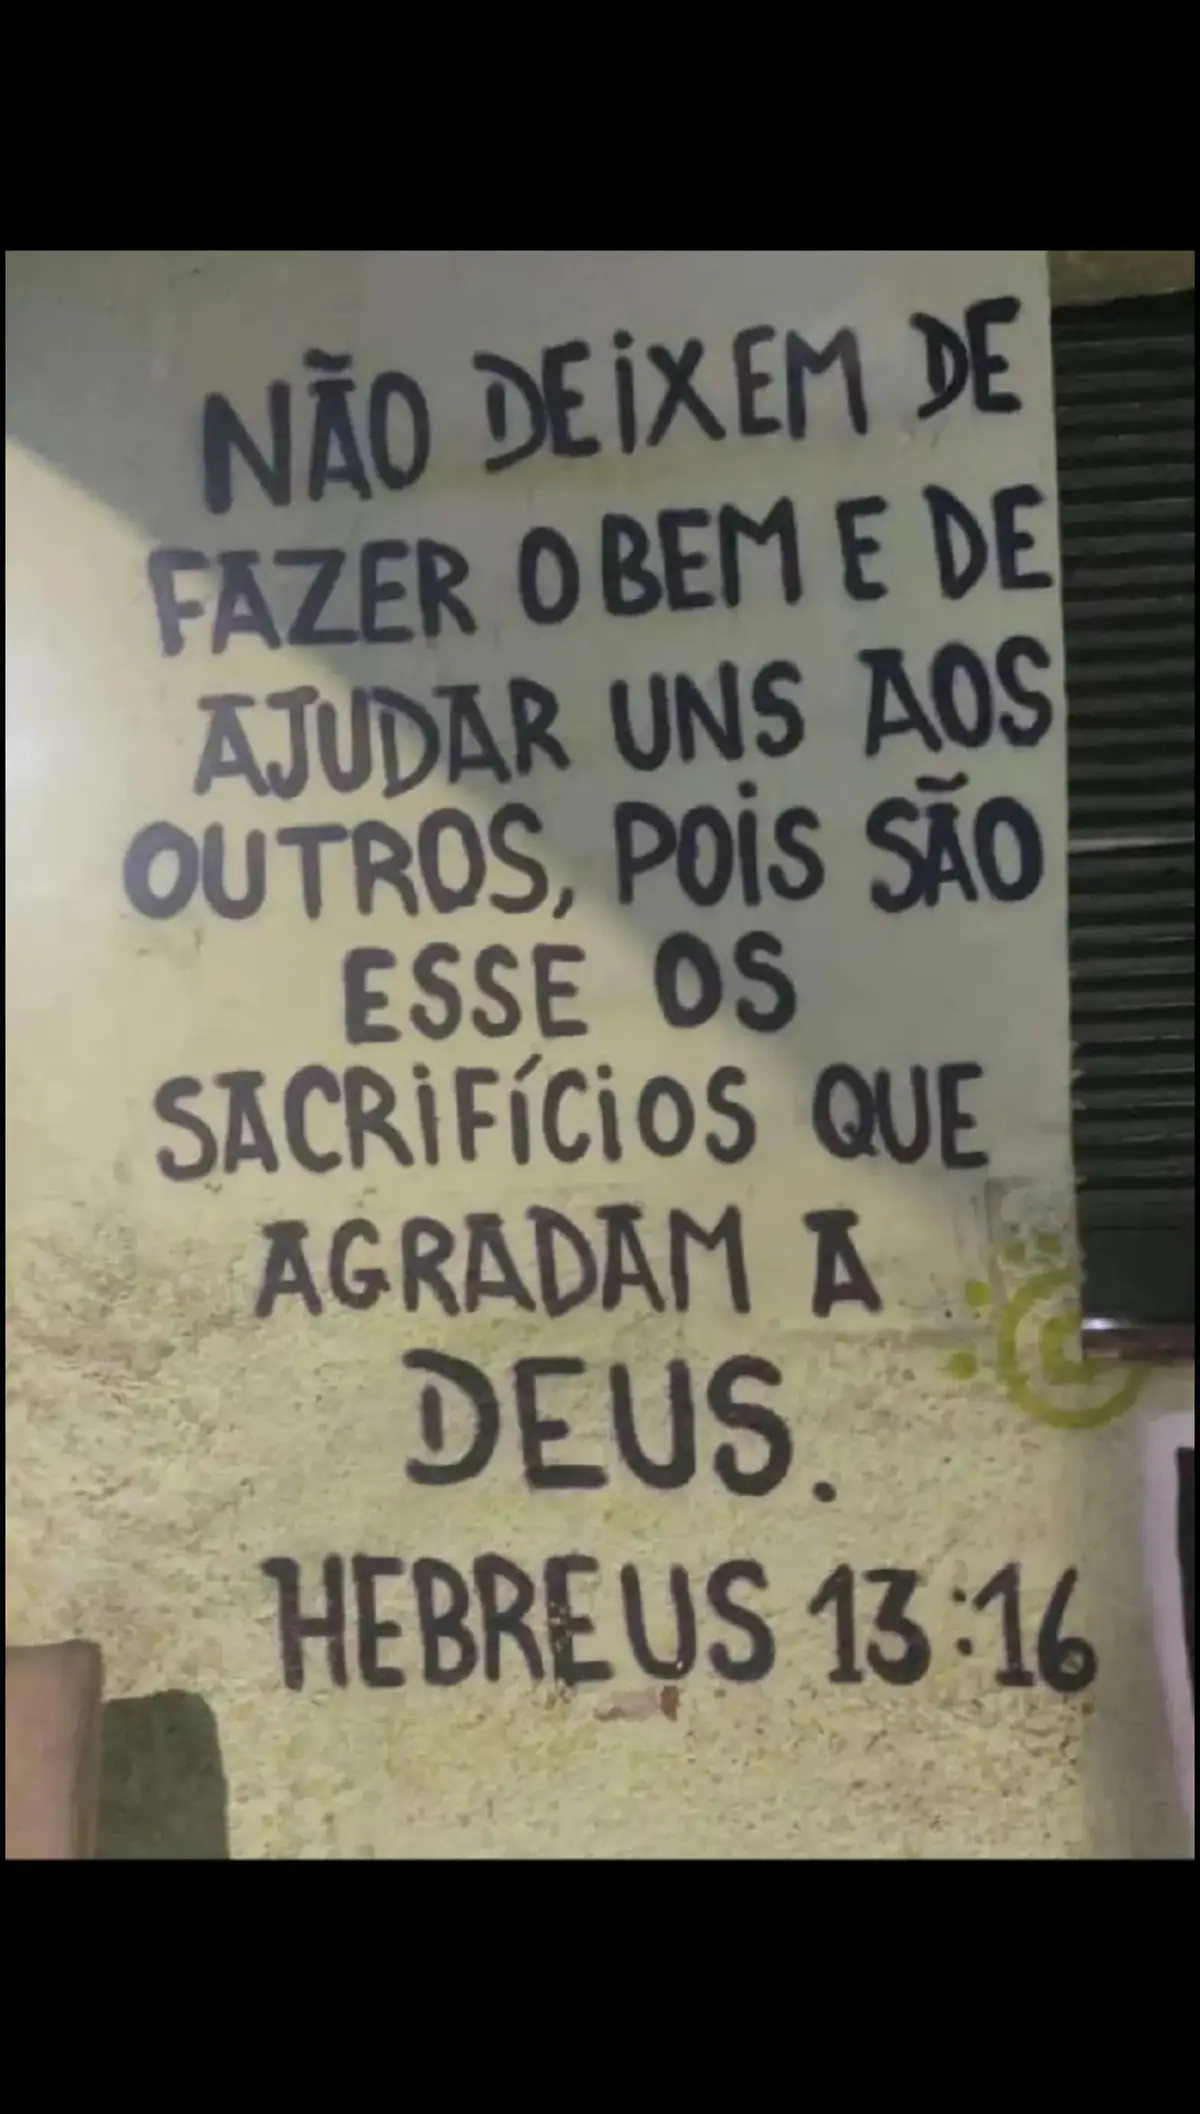 NÃO DEIXEM DE
FAZER O BEM E DE
AJUDAR UNS AOS
OUTROS, POIS SÃO
ESSE OS
SACRIFÍCIOS QUE
AGRADAM A
DEUS.
HEBREUS 13:16